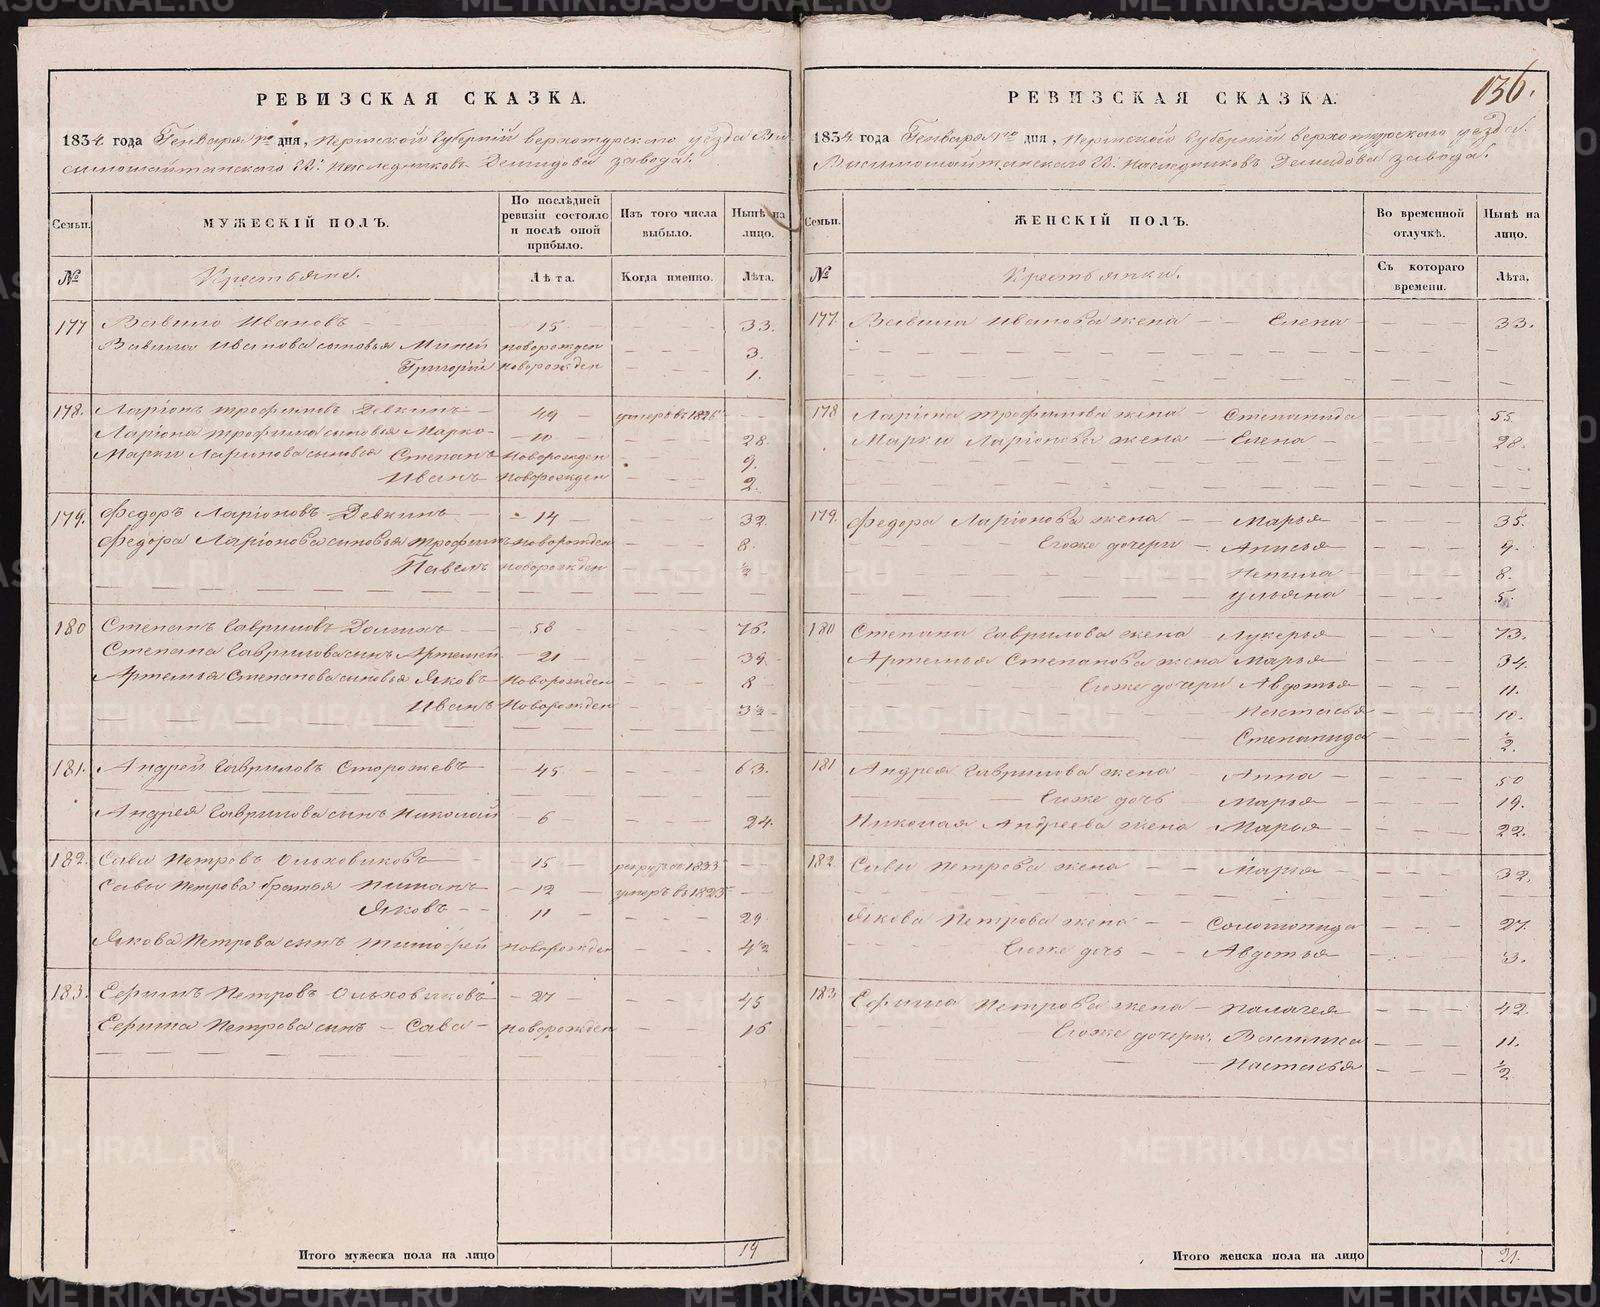 136.
РЕВИЗСКАЯ СКАЗКА.
1834 года Генваря 1го дня, Пермской Губернiи верхотурского уезда Ви
симошайтанского Н: Наследниковъ Демидова завода.
Семьи. МУЖЕСКIЙ ПОЛЪ. По послѣдней ревизiи состояло и послѣ оной прибыло. Изъ того числа выбыло. Нынѣ на лицо.
№ Крестьяне. Лѣта. Когда именно. Лѣта.
177 Вавило Ивановъ 15 33.
Вавила Иванова сыновья Миней новорожден 3.
Григорiй новорожден 1.
178. Ларiонъ трофимовъ Девкинъ 49 умеръ в 1826
Ларiона трофима сыновья Марко 10 28.
Марки Ларионова сыновья Степанъ новорожден 9.
Иванъ новорожден 2.
179. Федоръ Ларiоновъ Девкинъ 14 32.
Федора Ларiонова сыновья трофимъ новорожден 8.
Павелъ новорожден ½
180 Степанъ Гавриловъ Долгихъ 58 76.
Степана Гаврилова сынъ Артемей 21 39
Артемья Степанова сыновья Яковъ новорожден 8
Иванъ новорожден 3½
181. Андрей Гавриловъ Сторожевъ 45 63.
Андрея Гаврилова сынъ Николай 6 24.
182. Сава Петровъ Ольховиковъ 15 рекрутъ в 1833
Савы Петрова братья Пиманъ 12 умеръ в 1825
Яковъ 11 29
Якова Петрова сынъ тимофей новорожден 4½
183. Ефимъ Петровъ Ольховиковъ 27 45
Ефима Петрова сынъ Сава новорожден 16
Итого мужеска пола на лицо 19
РЕВИЗСКАЯ СКАЗКА.
1834 года Генваря 1го дня, Пермской Губернiи верхотурского уезда
Висимошайтанского Н: Наследниковъ Демидова завода.
Семьи. ЖЕНСКIЙ ПОЛЪ. Во временной отлучкѣ. Нынѣ на лицо.
№ Крестьянки. Съ котораго времени. Лѣта.
177. Вавила Иванова жена Елена 33.
178 Ларiона трофимова жена Степанида 55.
Марки Ларiонова жена Елена 28.
179. Федора Ларiонова жена Марья 35.
Егоже дочери Анисья 9.
Ненила 8.
Ульяна 5.
180 Степана Гаврилова жена Лукерья 73.
Артемья Степанова жена Марья 34.
Егоже дочери Авдотья 11.
Настасья 10.
Степанида ½.
181 Андрея Гаврилова жена Анна 50
Егоже дочь Марья 19.
Николая Андреева жена Марья 22.
182. Савы Петрова жена Марья 32.
Якова Петрова жена Соломонида 27.
Егоже дочь Авдотья 3.
183. Ефима Петрова жена Палагея 42.
Егоже дочери. Василиса 11.
Настасья ½
Итого женска пола на лицо 21.
METRIKI.GASO-URAL.RU